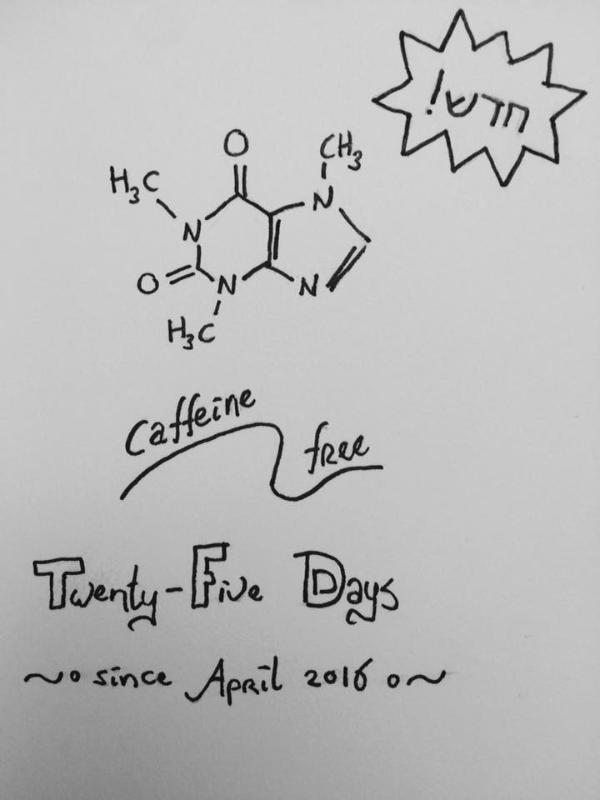 חדש!
O
CH3
H3C
N
N
O
N
N
H3C
Caffeine
free
Twenty-Five Days
~o since April 2016 o~